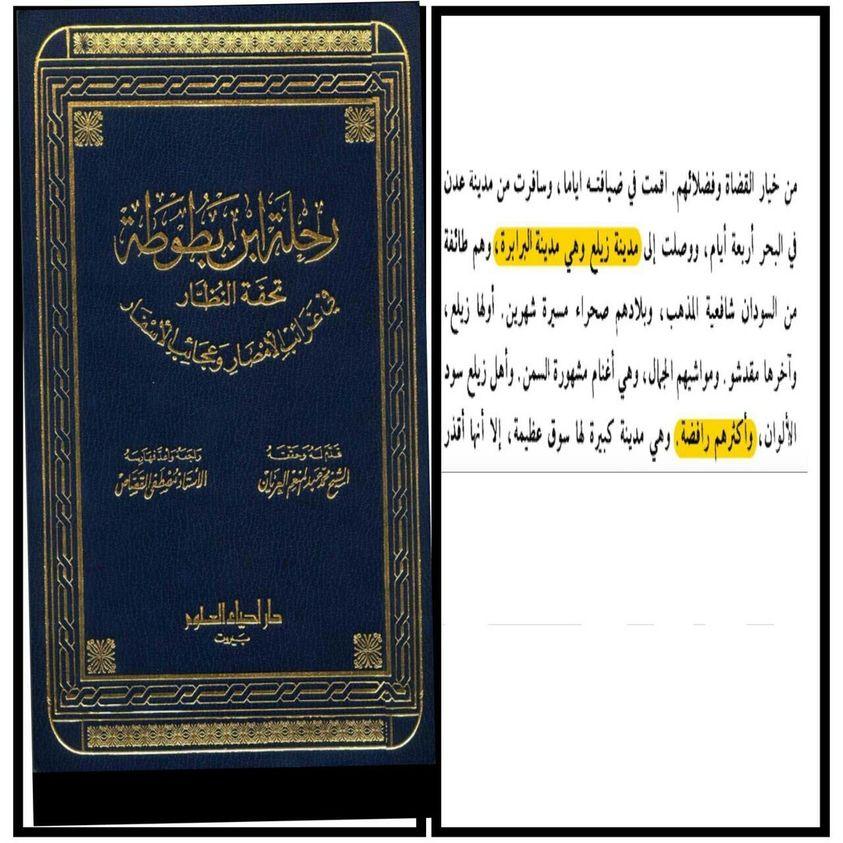 رحلة ابن بطوطة
تحفة النظار
في غرائب الأمصار وعجائب الأسفار
قدم له وحققه
الشيخ محمد عبد المنعم العريان
راجعه وأعد فهارسه
الأستاذ مصطفى القصاص
دار إحياء العلوم
بيروت
من خيار القضاة وفضلائهم. اقمت في ضيافته اياما، وسافرت من مدينة عدن
في البحر أربعة أيام، ووصلت إلى مدينة زيلع وهي مدينة البرابرة، وهم طائفة
من السودان شافعية المذهب، وبلادهم صحراء مسيرة شهرين. أولها زيلع،
وآخرها مقدشو. ومواشيهم الجمال، وهي أغنام مشهورة السمن. وأهل زيلع سود
الألوان، وأكثرهم رافضة. وهي مدينة كبيرة لها سوق عظيمة، إلا أنها أقذر